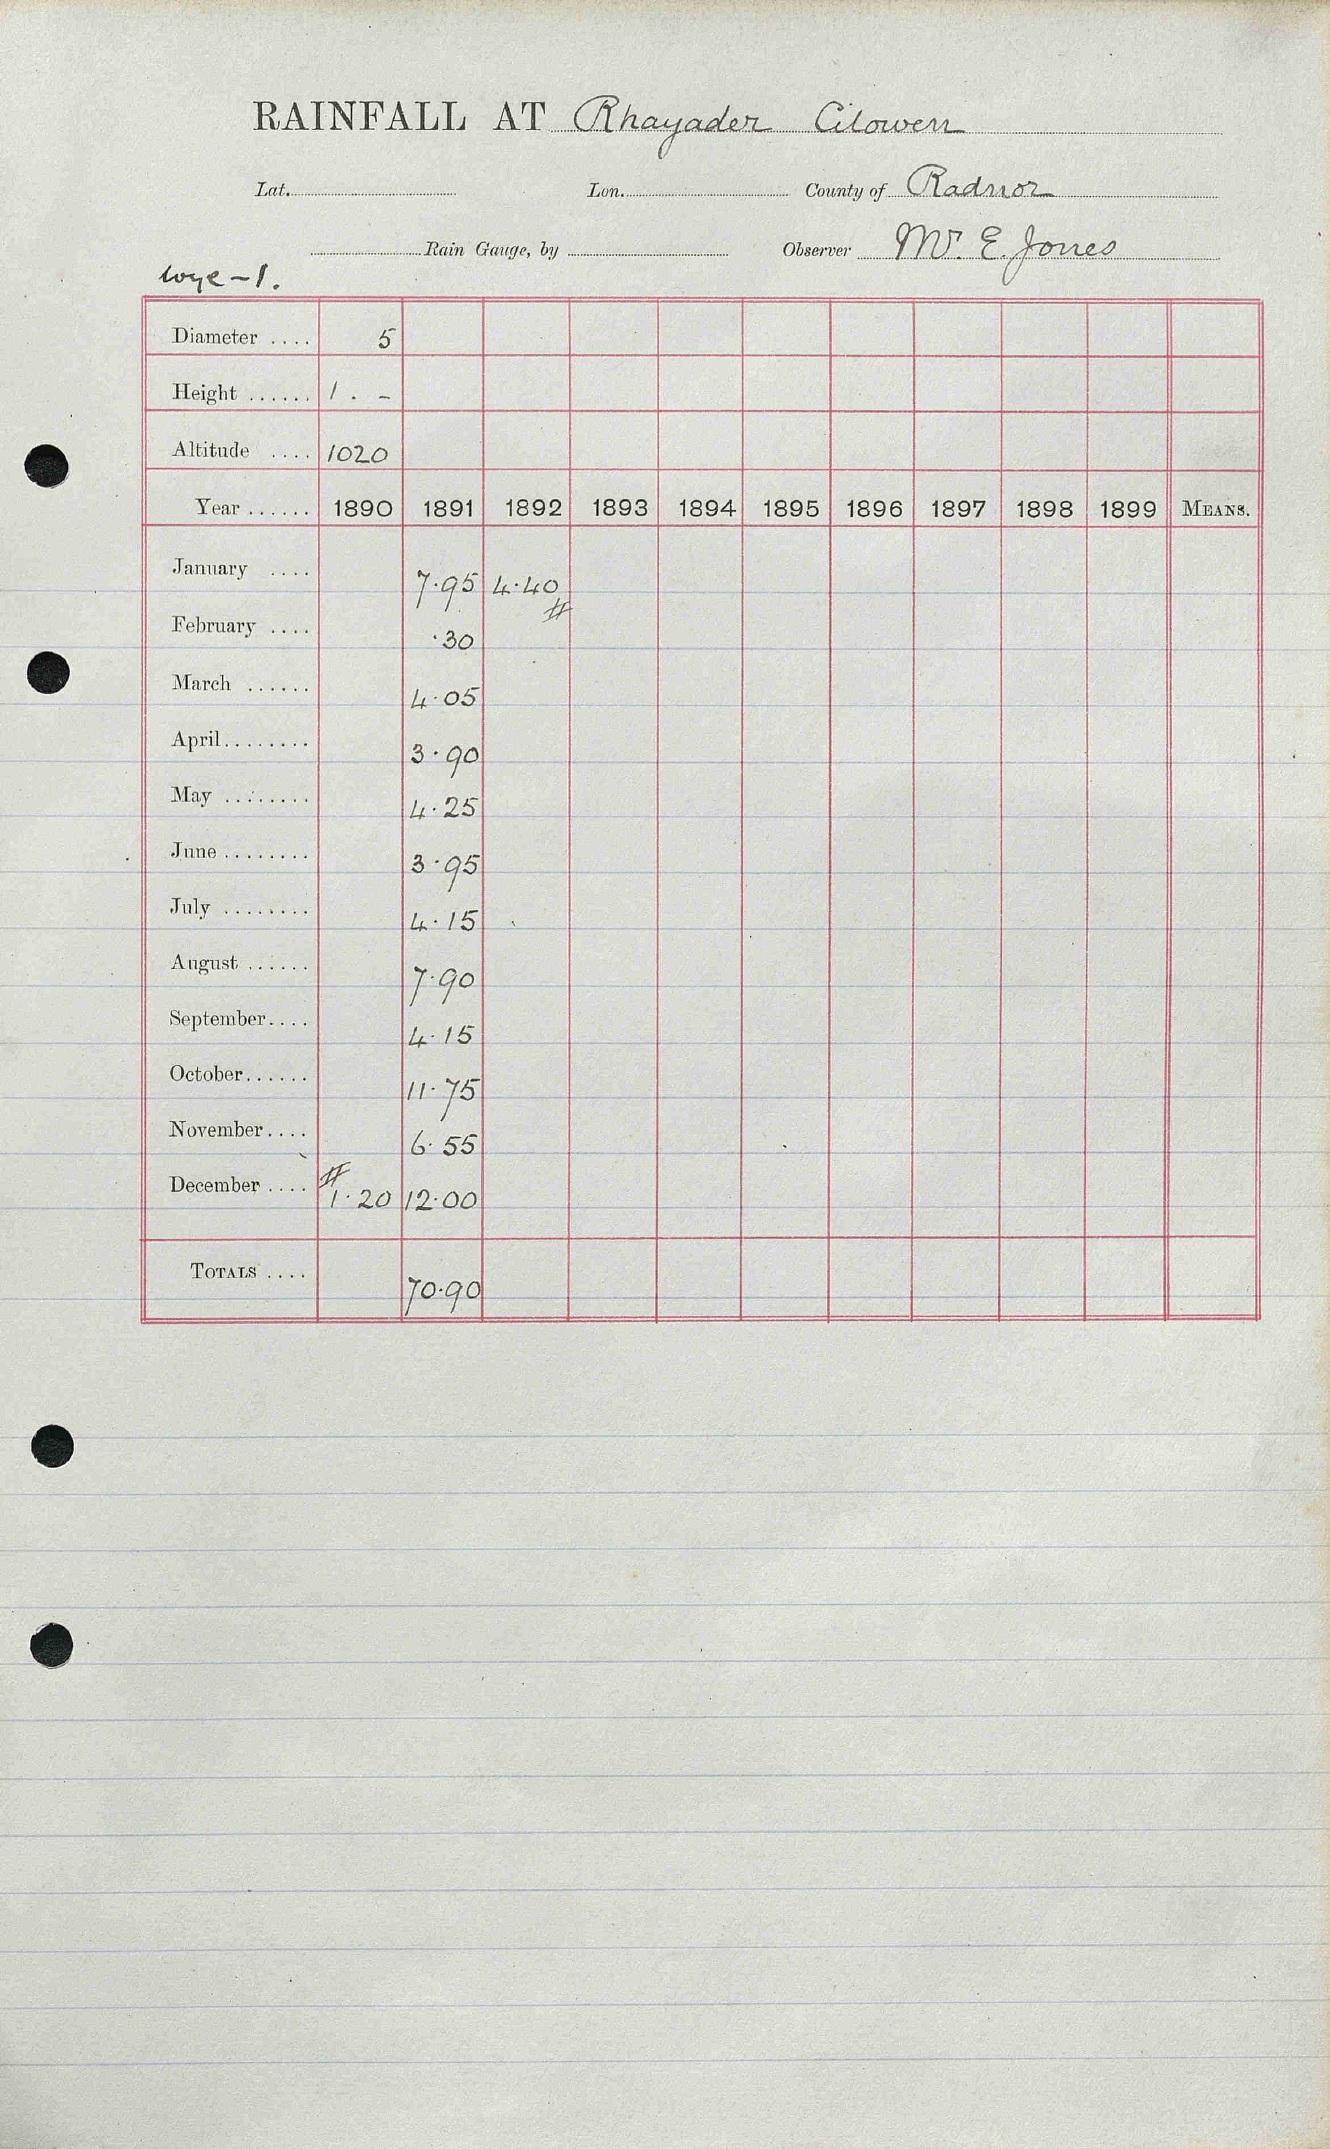 RAINFALL AT Rhayader Cilowen
Lat. Lon. County of Radnor
Rain Gauge, by Observer Mr. E. Jones
Wye-1.
Diameter .... 5
Height ...... 1 . -
Altitude .... 1020
Year ...... 1890 1891 1892 1893 1894 1895 1896 1897 1898 1899 MEANS.
January .... 7.95 4.40 #
February .... .30
March ...... 4.05
April ........ 3.90
May ........ 4.25
June ........ 3.95
July ........ 4.15
August ...... 7.90
September.... 4.15
October...... 11.75
November.... 6.55
December .... # 1.20 12.00
TOTALS .... 70.90